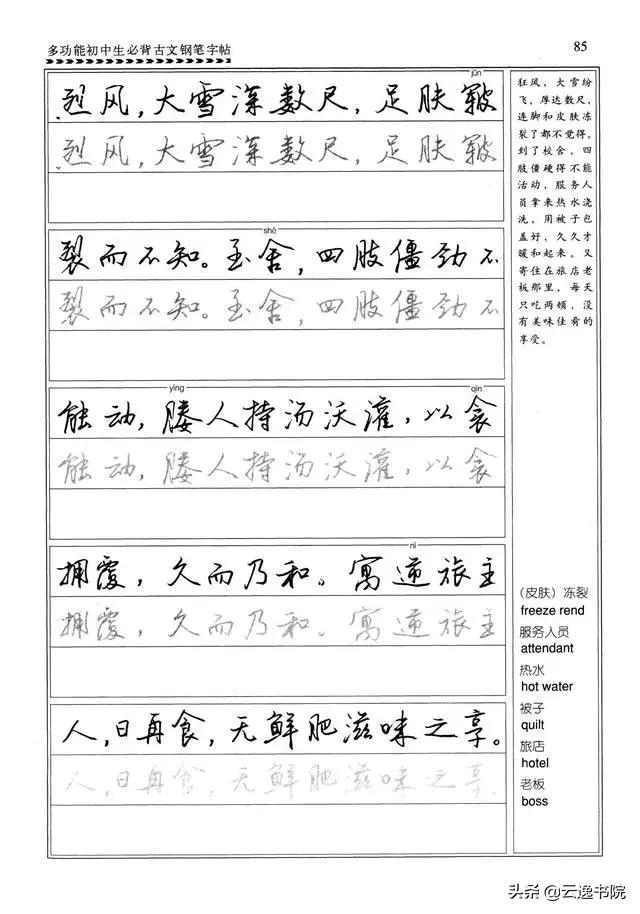 多功能初中生必背古文钢笔字帖
85
jūn
烈风,大雪深数尺,足肤皲
烈风,大雪深数尺,足肤皲
shè
裂而不知。至舍,四肢僵劲不
裂而不知。至舍,四肢僵劲不
yìng qīn
能动,媵人持汤沃灌,以衾
能动,媵人持汤沃灌,以衾
nì
拥覆,久而乃和。寓逆旅主
拥覆,久而乃和。寓逆旅主
人,日再食,无鲜肥滋味之享。
人,日再食,无鲜肥滋味之享。
狂风,大雪纷
飞,厚达数尺,
连脚和皮肤冻
裂了都不觉得。
到了校舍,四
肢僵硬得不能
活动,服务人
员拿来热水浇
洗,用被子包
盖好,久久才
暖和起来。又
寄住在旅店老
板那里,每天
只吃两顿,没
有美味佳肴的
享受。
(皮肤)冻裂
freeze rend
服务人员
attendant
热水
hot water
被子
quilt
旅店
hotel
老板
boss
头条@云逸书院